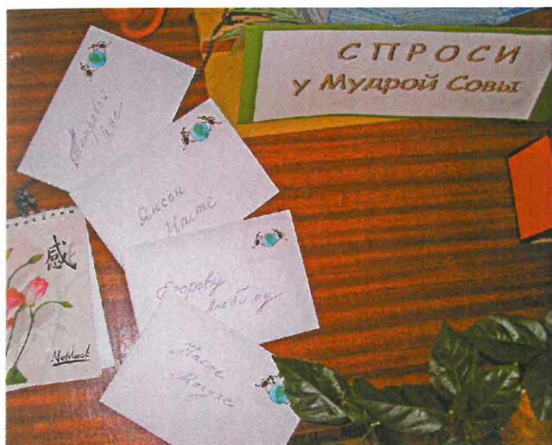 СПРОСИ
у Мудрой Совы
Янсон
Насте
Егорову
Любиму
Насте
感
Notebook